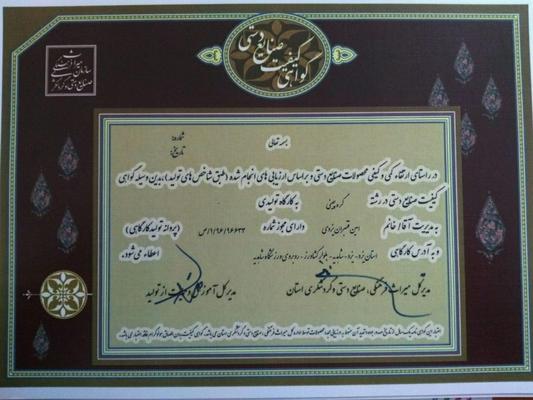 گواهی کیفیت صنایع دستی
سازمان میراث فرهنگی
صنایع دستی و گردشگری
بسمه تعالی
شماره:
تاریخ:
در راستای ارتقاء کمی و کیفی محصولات صنایع دستی و براساس ارزیابی های انجام شده (طبق شاخص های تولید)، بدین وسیله گواهی
کیفیت صنایع دستی در رشته به کارگاه تولیدی
به مدیریت آقا/خانم امین قنبریان یزدی دارای مجوز شماره ۱/۹۶/۹۶۶۳۳/ص (پروانه تولید کارگاهی)
و به آدرس کارگاهی استان یزد - یزد - شاهدیه - بلوار کشاورز - روبروی ورزشگاه شاهدیه اعطاء می شود.
مدیرکل میراث فرهنگی، صنایع دستی و گردشگری استان
مدیرکل آموزش و از تولید